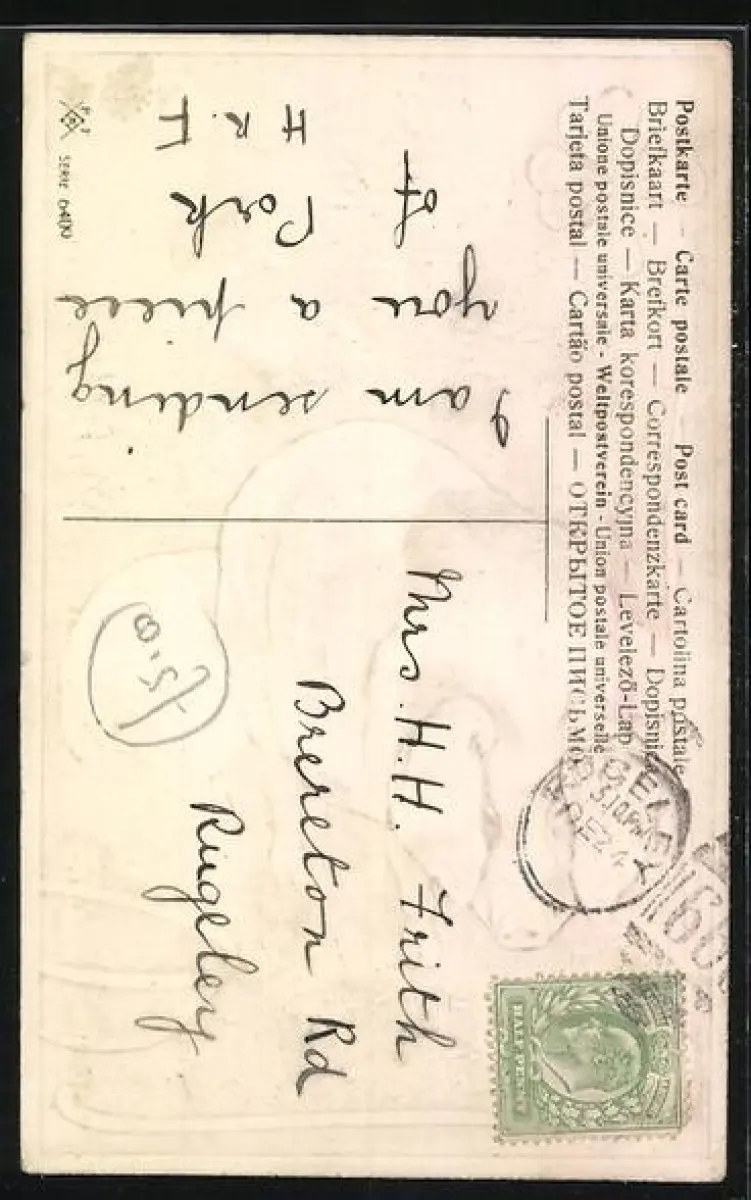 Postkarte – Carte postale – Post card – Cartolina postale
Briefkaart — Brefkort — Correspondenzkarte — Dopisnic
Dopisnice — Karta korespondencyjna — Levelező-Lap
Unione postale universale - Weltpostverein - Union postale universelle
Tarjeta postal — Cartão postal — ОТКРЫТОЕ ПИСЬМО
I am sending
you a piece
of Pork
H R. F
SERIE 6400
Mrs. H. H. Frith
Brereton Rd
Rugeley
GELEY
DE 4
HALF PENNY